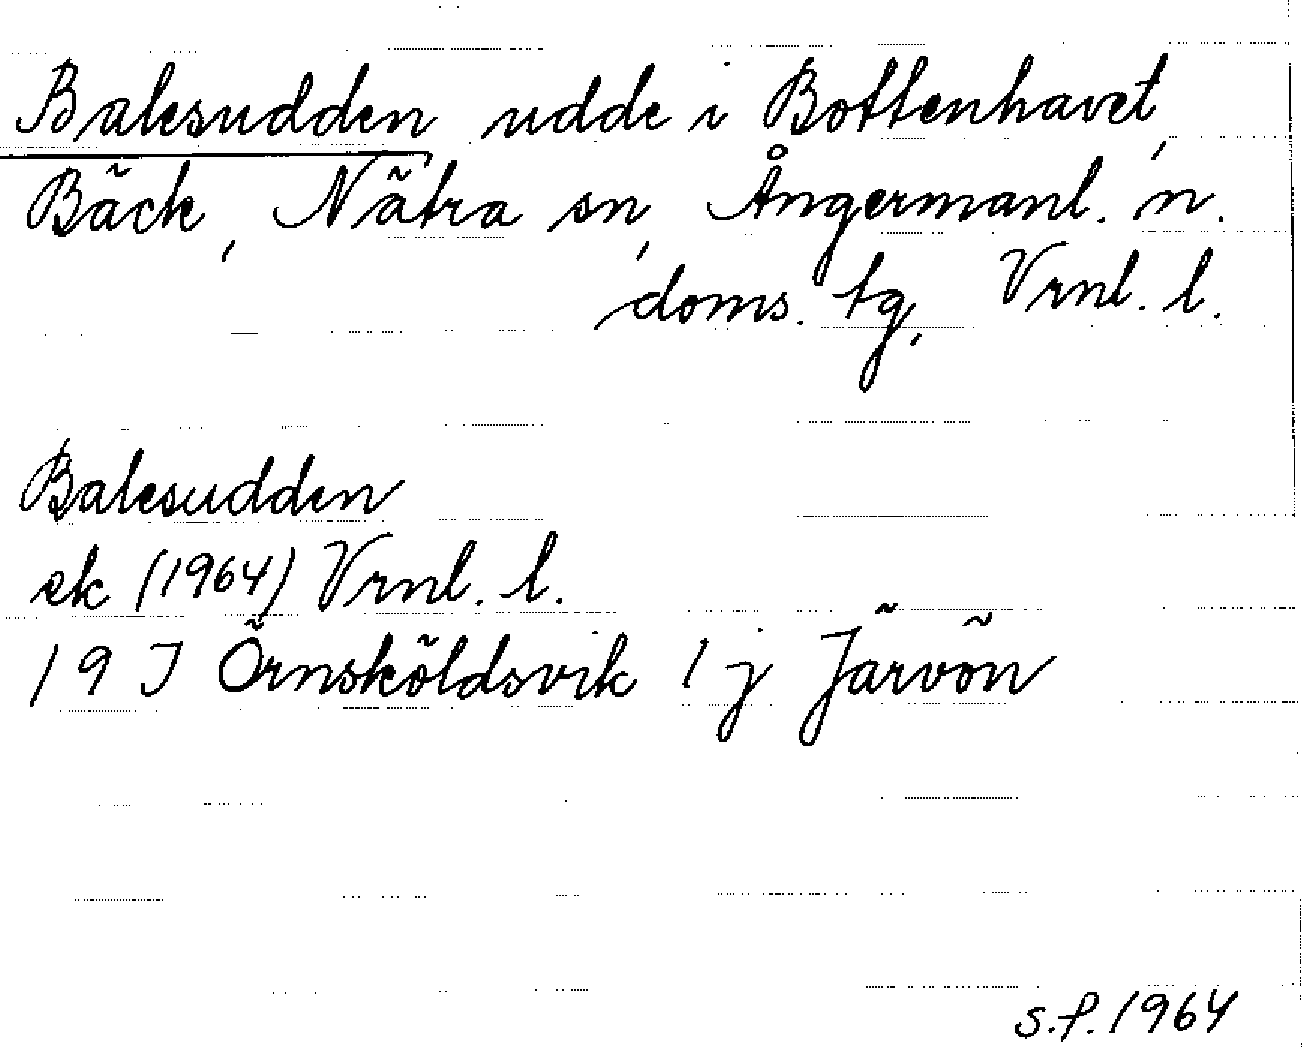 Balesudden, udde i Bottenhavet,
Bäck, Nätra sn, Ångermanl. n.
doms. tg, Vrnl. l.
Balesudden
ek (1964) Vrnl. l.
19 J Örnsköldsvik 1 j Järvön
s.f. 1964